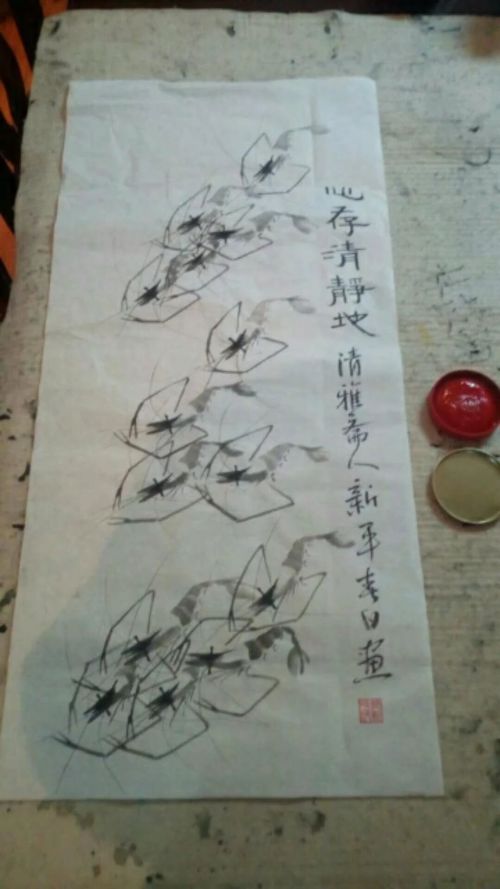 心存清靜地 清雅斋人新平春日画